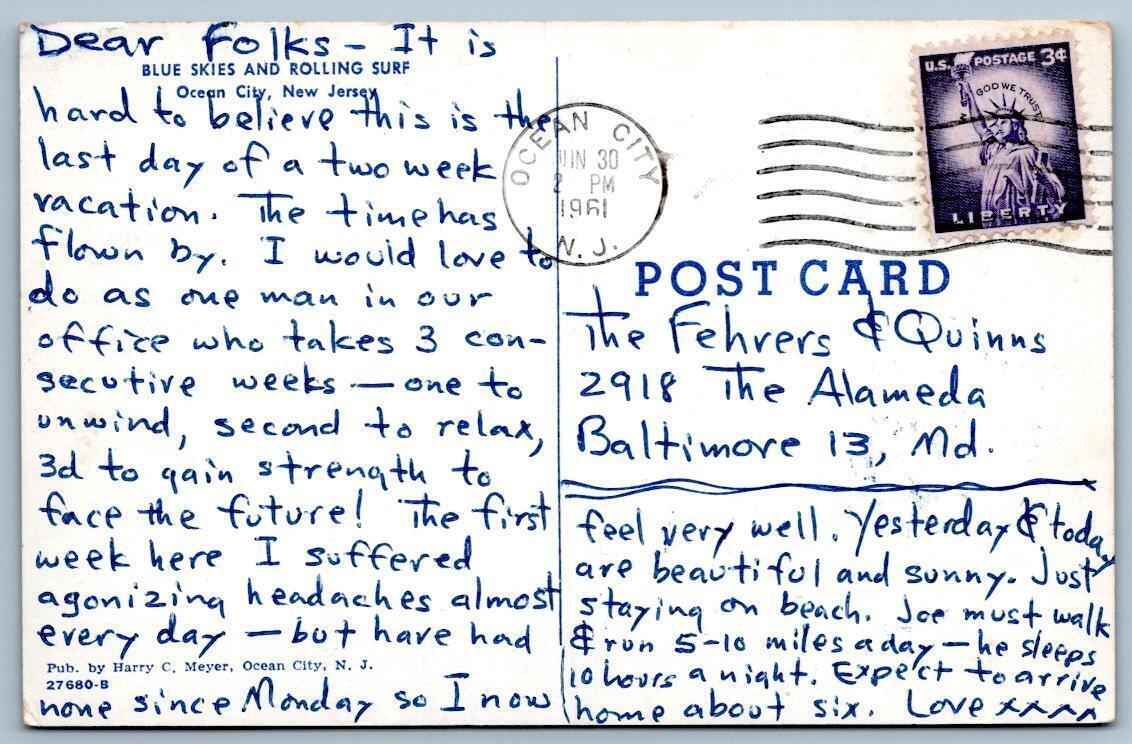 Dear Folks - It is
BLUE SKIES AND ROLLING SURF
Ocean City, New Jersey
hard to believe this is the
last day of a two week
vacation. The time has
flown by. I would love to
do as one man in our
office who takes 3 con-
secutive weeks — one to
unwind, second to relax,
3d to gain strength to
face the future! The first
week here I suffered
agonizing headaches almost
every day — but have had
Pub. by Harry C. Meyer, Ocean City, N. J.
27680-B
none since Monday so I now
feel very well. Yesterday & today
are beautiful and sunny. Just
staying on beach. Joe must walk
& run 5-10 miles a day — he sleeps
10 hours a night. Expect to arrive
home about six. Love xxxx
OCEAN CITY
JUN 30
2 PM
1961
N. J.
U.S. POSTAGE 3¢
IN GOD WE TRUST
LIBERTY
POST CARD
The Fehrers & Quinns
2918 The Alameda
Baltimore 13, Md.